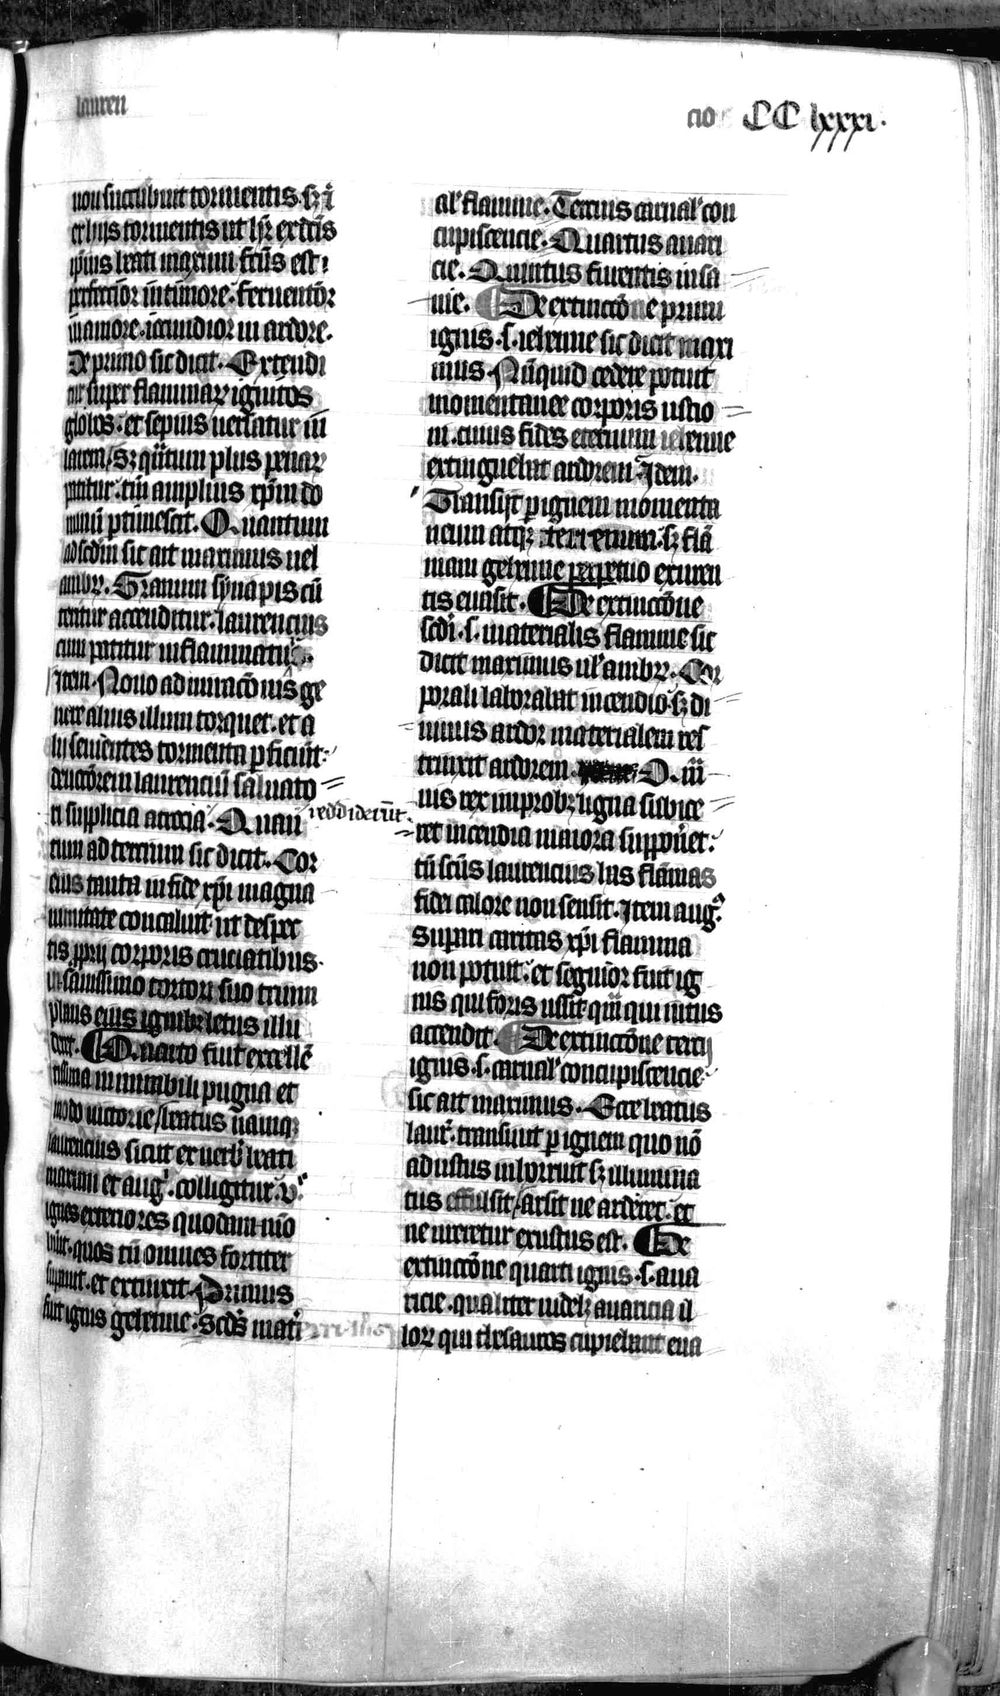 lauren
cio CC lxxxi.
non succubuit tormentis. sꝫ ī
ex hijs tormentis ut hr̄ ex dc̄is
ip̄ius beati maximi fc̄us est
ꝑfectior in timore. feruentior
in amore. iocundior in ardore.
De primo sic dicit. Extendi
tur super flammaꝝ ignitos
globos. et sepius uersatur in
latem. Sꝫ q̄ntum plus penaꝝ
patitur. tm̄ amplius xp̄m do
minū ꝑtimescit. Quantum
ad scdm̄ sic ait maximus uel
ambꝝ. Granum synapis cū
teritur accenditur. laurencius
cum patitur inflammatur.
Item. Nouo admiracōnis ge
nere alius illum torquet. et a
lij seuientes tormenta ꝑficiūt.
deuocōrem laurenciū saluato
ri supplicia atrocia. Quan
reddiderūt
tum ad tercium sic dicit. Cor
eius tanta in fide xp̄i magna
nimitate concaluit. ut despec
tis ꝓprij corporis cruciatibus.
insanissimo tortori suo triun
phans eius ignibꝫ letus illu
deret. Quarto fuit excellē
tissima in mirabili pugna et
modo uictorie. beatus namqꝫ
laurencius sicut ex uerbis beati
maximi et aug. colligitur. v.
ignes exteriores quodam mō
inuit. quos tn̄ omnes fortiter
supauit. et extinxit. Primus
fuit ignis gehenne. Scd̄s mati
al' flamme. Tercius carnal' con
cupiscencie. Quartus auari
cie. Quintus furentis insa
nie. De extinctōne primi
ignis. s. iehenne sic dicit maxi
mus. Nūquid cedere potuit
momentanee corporis ustio
ni. cuius fides eternum iehenne
extinguebat ardorem. Item.
Transijt ꝑ ignem momenta
neum atqꝫ terrenum. sꝫ flā
mam gehenne perpetuo exuren
tis euasit. De extinctōne
scdi. s. materialis flamme sic
dicit maximus ul' ambꝝ. Cor
porali laborabat incendio. sꝫ di
uinus ardor materialem res
trinxit ardorem. Q. iii
ius rex improbꝫ ligna subice
ret incendia maiora supponeret.
tn̄ scūs laurencius has flāmas
fidei calore non sensit. Item aug.
Supari caritas xp̄i flamma
non potuit. et segnior fuit ig
nis qui foris ussit q̄m qui intus
accendit. De extinctōne tercij
ignis. s. carnal' concupiscencie.
sic ait maximus. Ecce beatus
laur̄. transiuit ꝑ ignem quo nō
adustus inhorruit sꝫ illumina
tus effulsit. arsit ne arderet. et
ne ureretur exustus est. De
extinctōne quarti ignis. s. aua
ricie. qualiter uidelꝫ auaricia il
loꝝ qui thesauros cupiebant eua